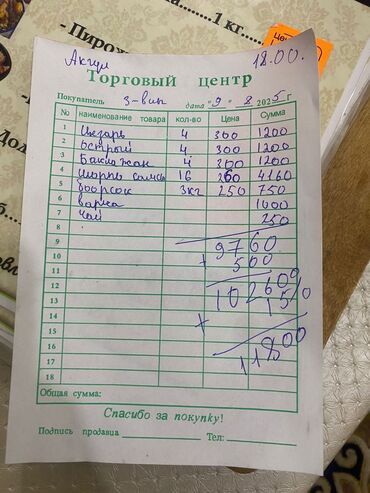 - Пирож
1 кг
Акгул 18.00.
Торговый центр
Покупатель 3-вип дата "9" 8 2025 г
№ наименование товара кол-во Цена Сумма
1 Цезарь 4 300 1200
2 острый 4 300 1200
3 Баклажан 4 300 1200
4 шорпо 16 260 4160
5 боорсок 3кг 250 750
6 варка 1000
7 чай 250
8
9 9760
10 + 500
11
12 10260
13 + 15%
14
15
16 11800
17
18
Общая сумма:
Спасибо за покупку!
Подпись продавца Тел: